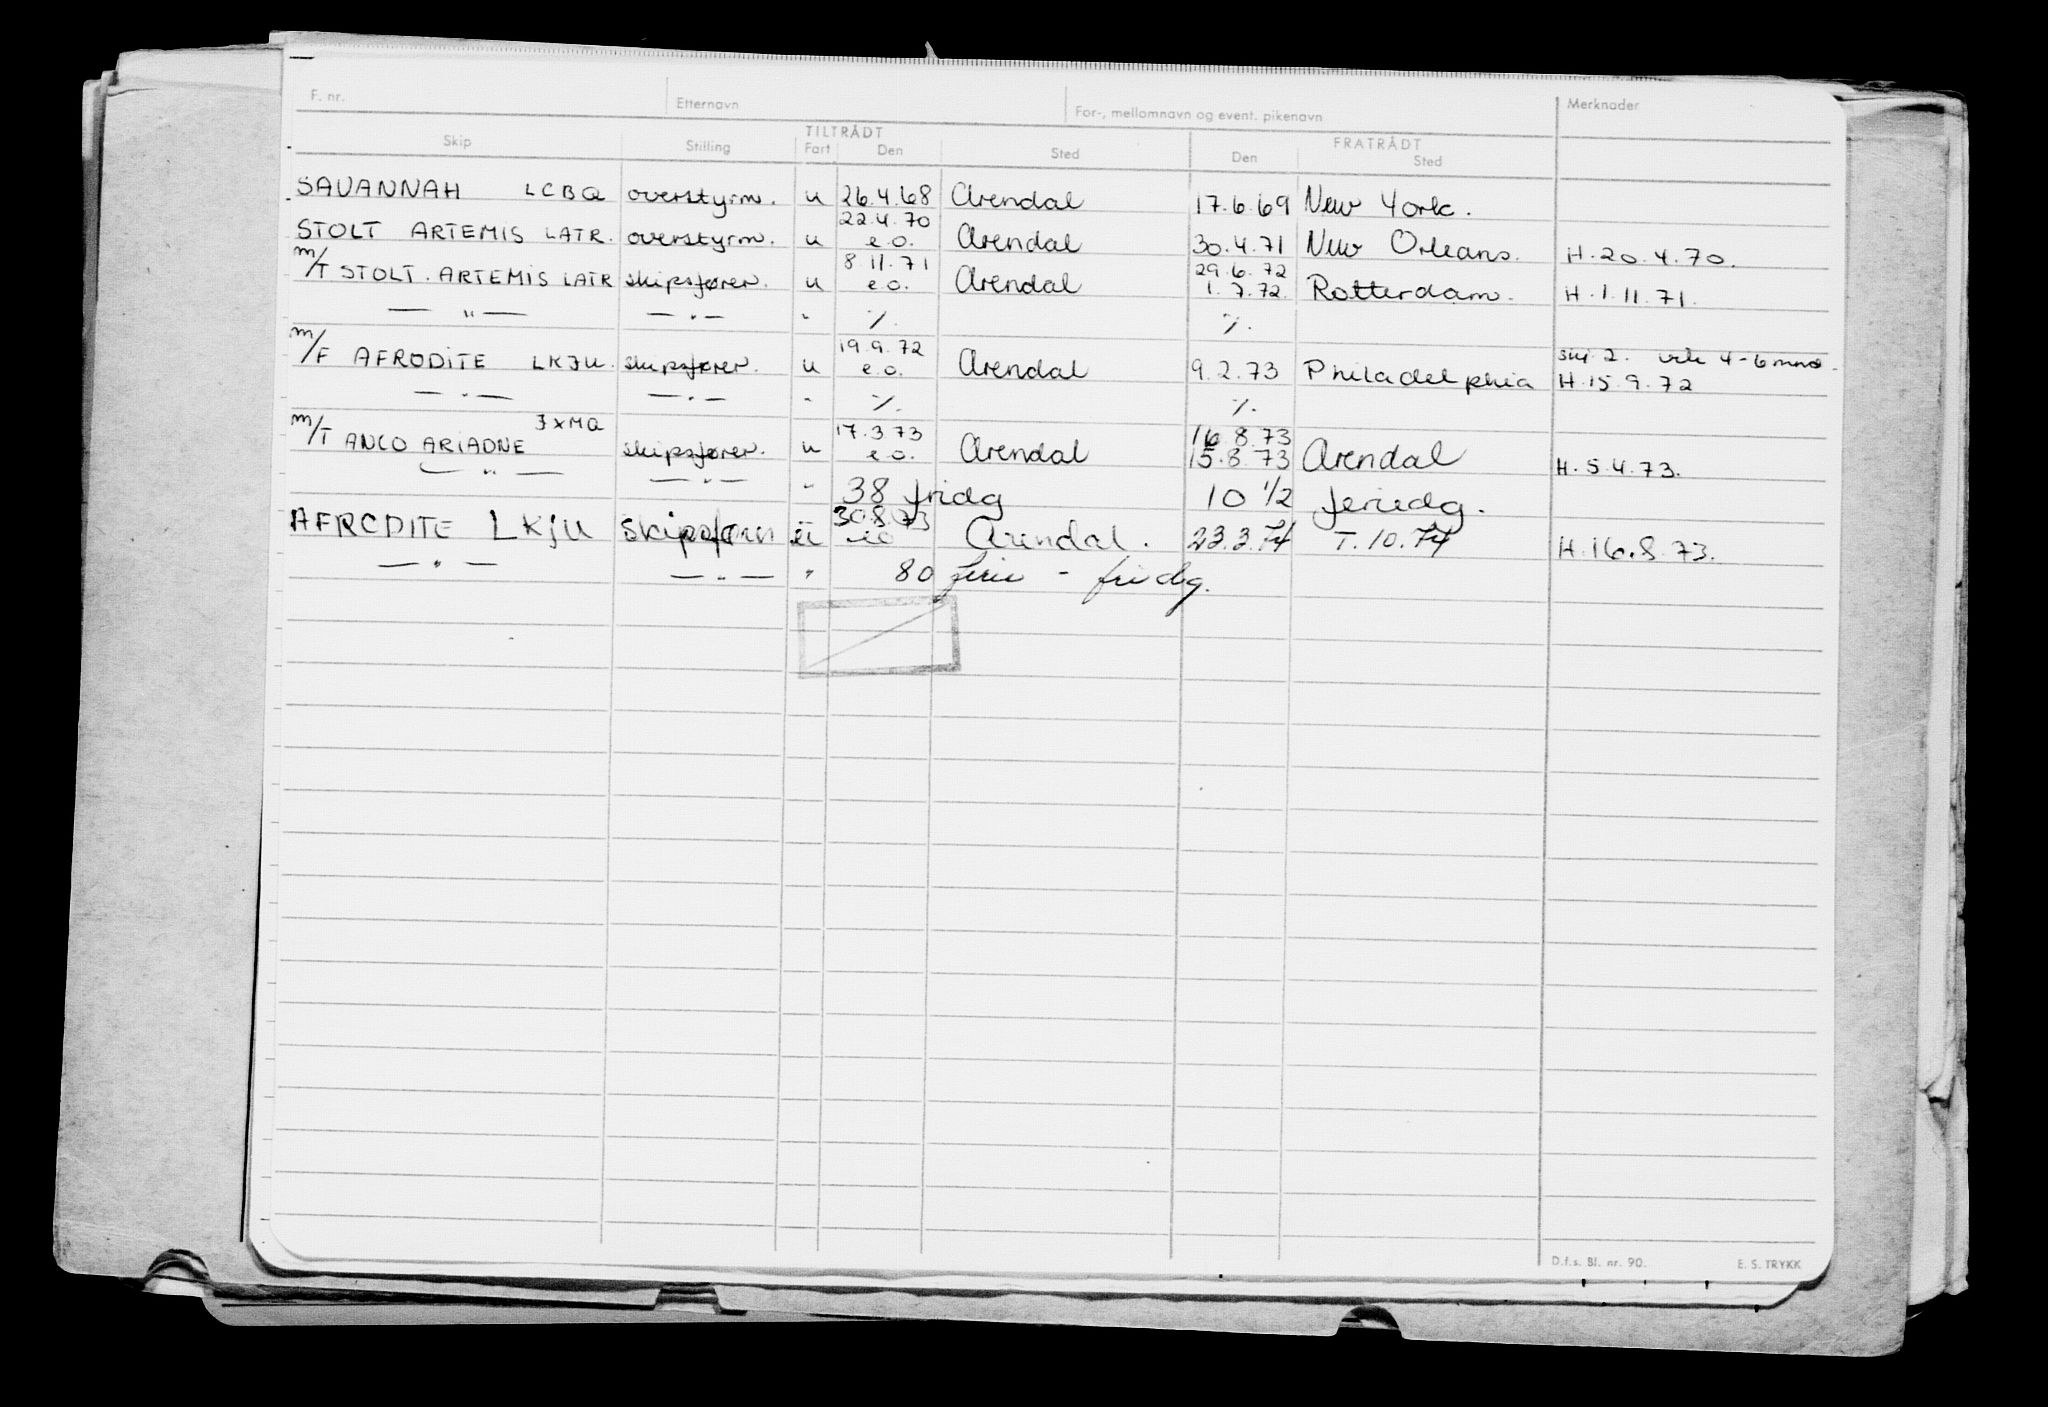 F. nr. Etternavn For-, mellomnavn og event. pikenavn Merknader
TILTRÅDT FRATRÅDT
Skip Stilling Fart Den Sted Den Sted
SAVANNAH LCBQ overstyrm. u 26.4.68 Arendal 17.6.69 New York.
22.4.70
STOLT ARTEMIS LATR. overstyrm. u e.o. Arendal 30.4.71 New Orleans. H.20.4.70.
8.11.71 29.6.72
m/T STOLT. ARTEMIS LATR skipsfører. u e.o. Arendal 1.7.72. Rotterdam. H.1.11.71.
— " — — " — " ٪. ٪.
19.9.72 4-6 mnd.
m/F AFRODITE LKJU. skipsfører. u e.o. Arendal 9.2.73 Philadelphia H.15.9.72
— " — — " — " ٪. ٪.
JXMQ 17.3.73 16.8.73
m/T ANCO ARIADNE skipsfører. u e.o. Arendal 15.8.73 Arendal H.5.4.73.
— " — — " — " 38 fridg 10 1/2 feriedg.
30.8.73
AFRODITE LKJU skipsfører u eo Arendal. 23.3.74 T.10.74 H.16.8.73.
— " — — " — " 80 ferie - fridg.
D.f.s. Bl. nr. 90. E. S. TRYKK